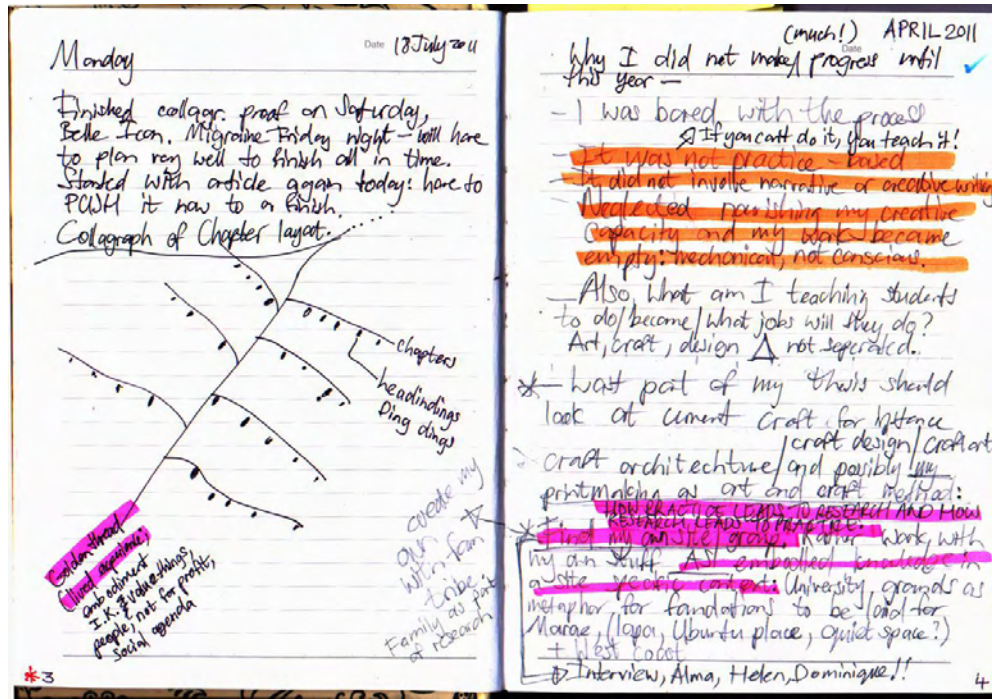 Monday
Date 18 July 2011
Finished collagr. proof on Saturday,
Belle Icon. Migraine Friday night - will have
to plan very well to finish all in time.
Started with article again today: have to
PUSH it now to a finish.
Collagraph of Chapter layout.
chapters
headindings
Ding dings
Golden thread
lived experience:
embodiment
I.K. & value things,
people, not for profit,
social agenda
create my
own
with fam
tribe
Family as part
of research
*3
(much!) APRIL 2011
Date
Why I did not make progress until
this year —
- I was bored with the process
If you can't do it, you teach it!
- It was not practice - based
- It did not involve narrative or creative writing
- Neglected nourishing my creative
capacity and my work became
empty: mechanical, not conscious.
- Also, what am I teaching students
to do/become/what jobs will they do?
Art, craft, design Δ not seperated.
* - Last part of my thesis should
look at current craft for instance
/craft design/craft art
craft architechture/and possibly my
printmaking as art and craft method:
HOW PRACTICE LEADS TO RESEARCH AND HOW
RESEARCH LEADS TO PRACTICE.
* Find my own site/group, rather work with
my own stuff. As embodied knowledge in
a site specific context: University grounds as
metaphor for foundations to be laid for
Marae, (lapa, Ubuntu place, quiet space?)
+ West coast
Interview, Alma, Helen, Dominique!!
4